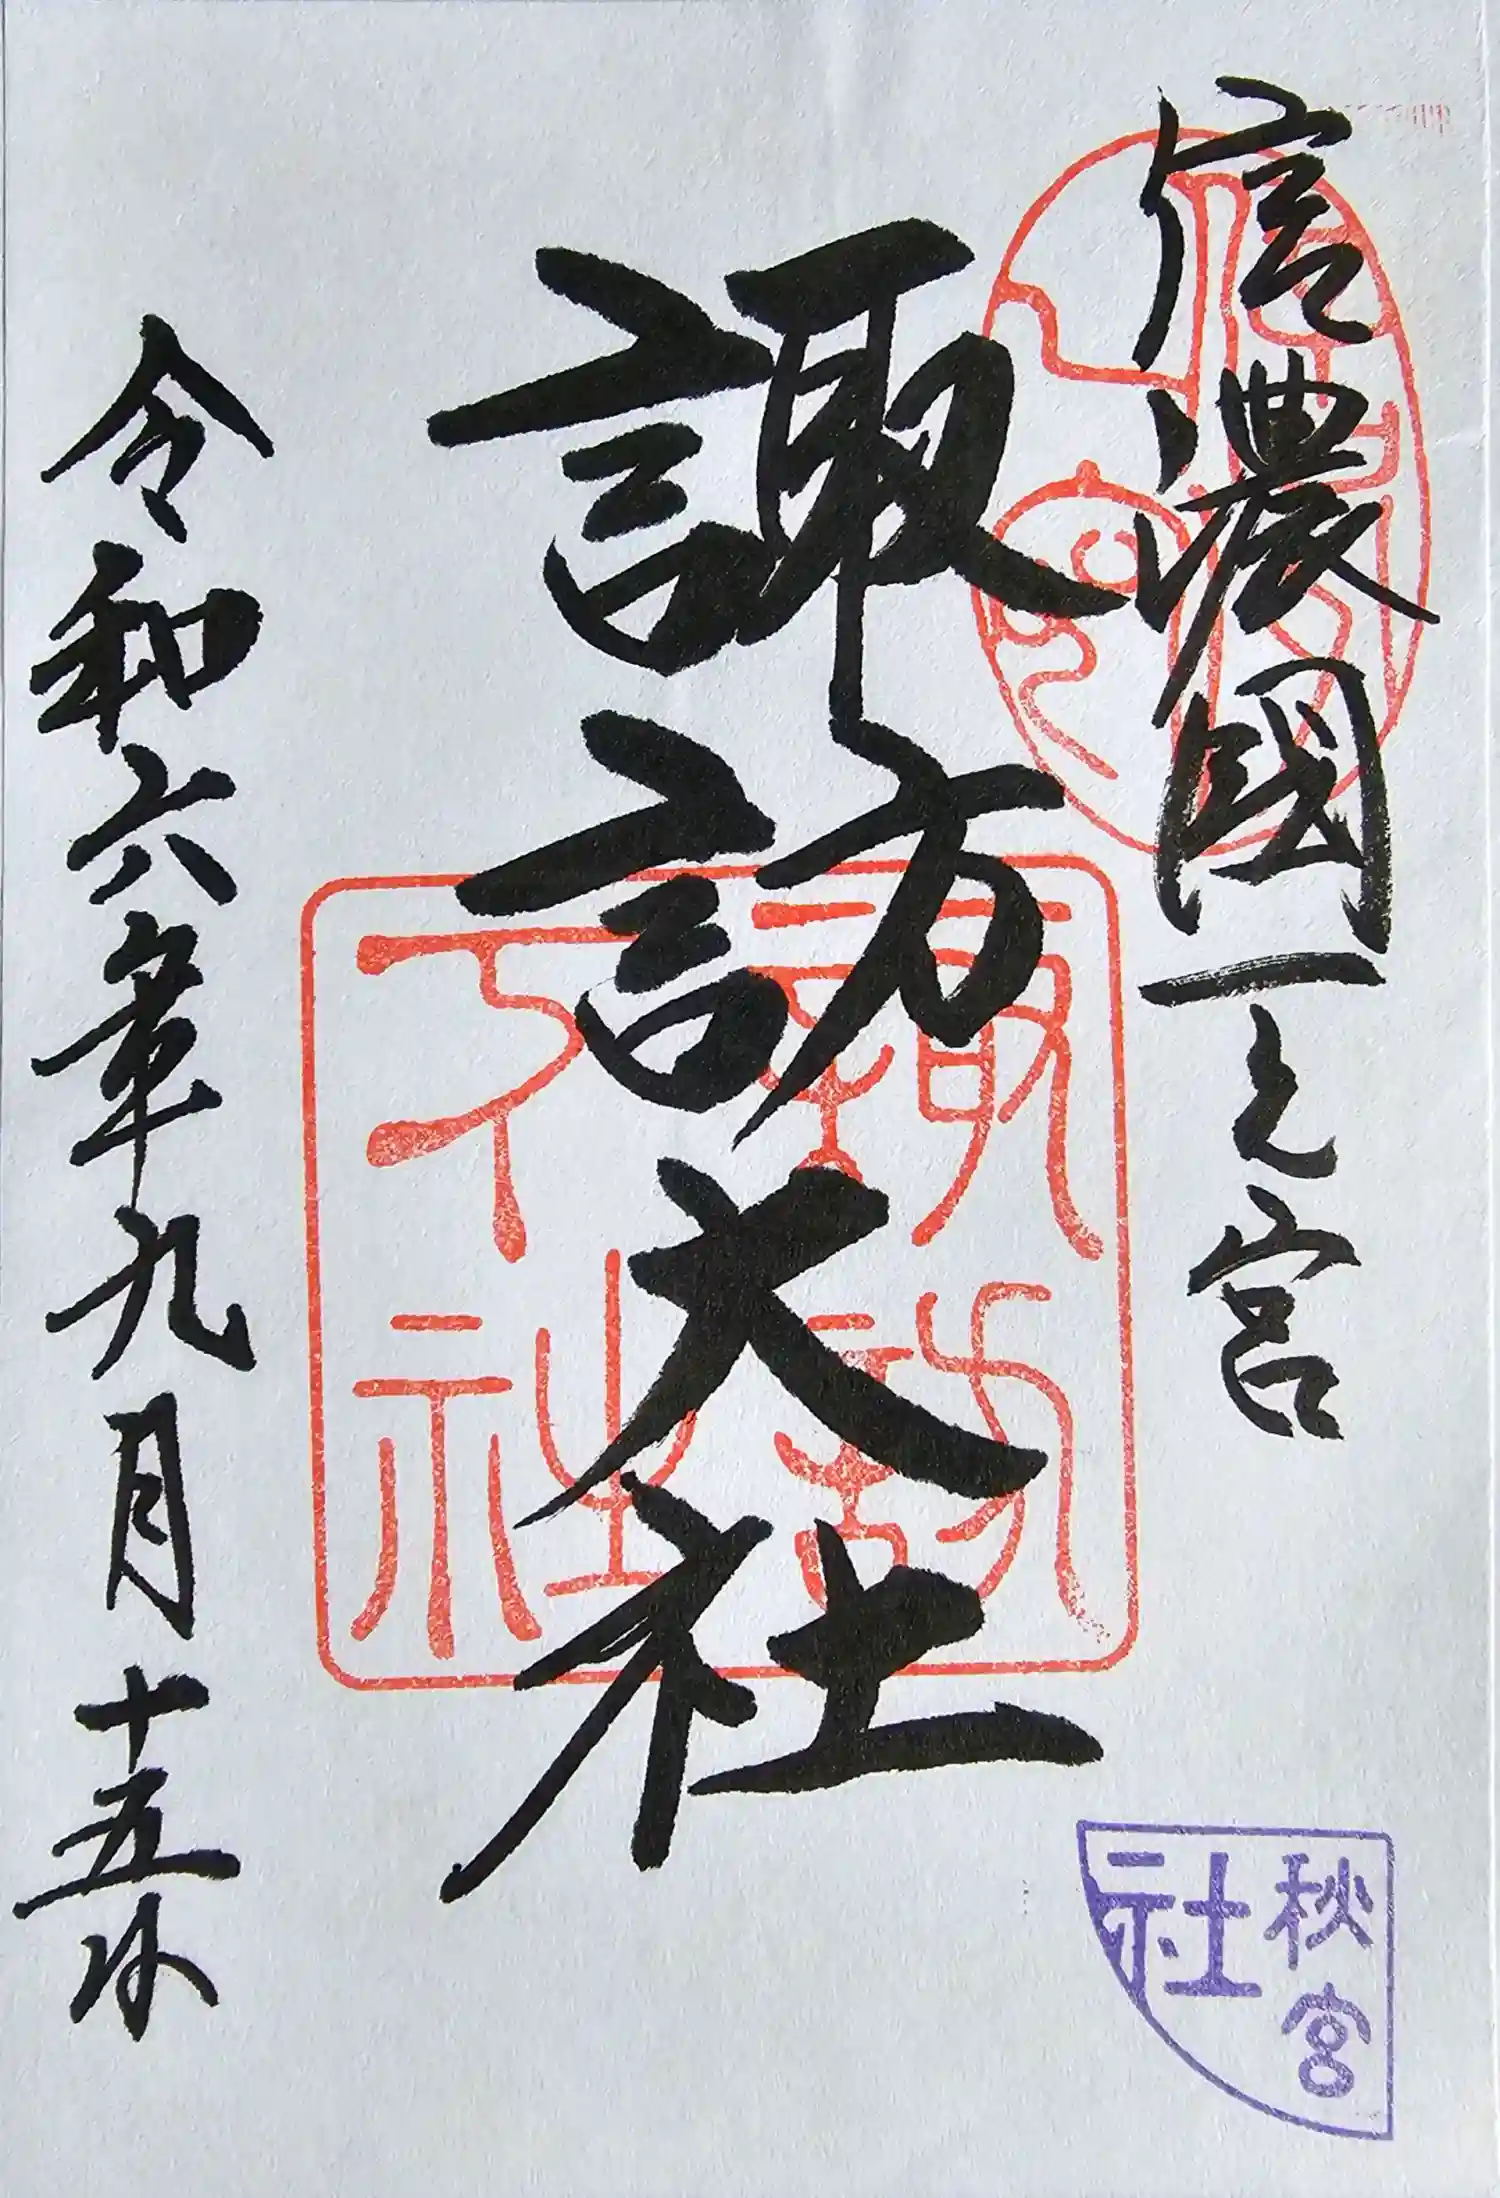 信濃國一之宮
諏訪大社
令和六年九月十五日
諏訪
下社
秋宮
社